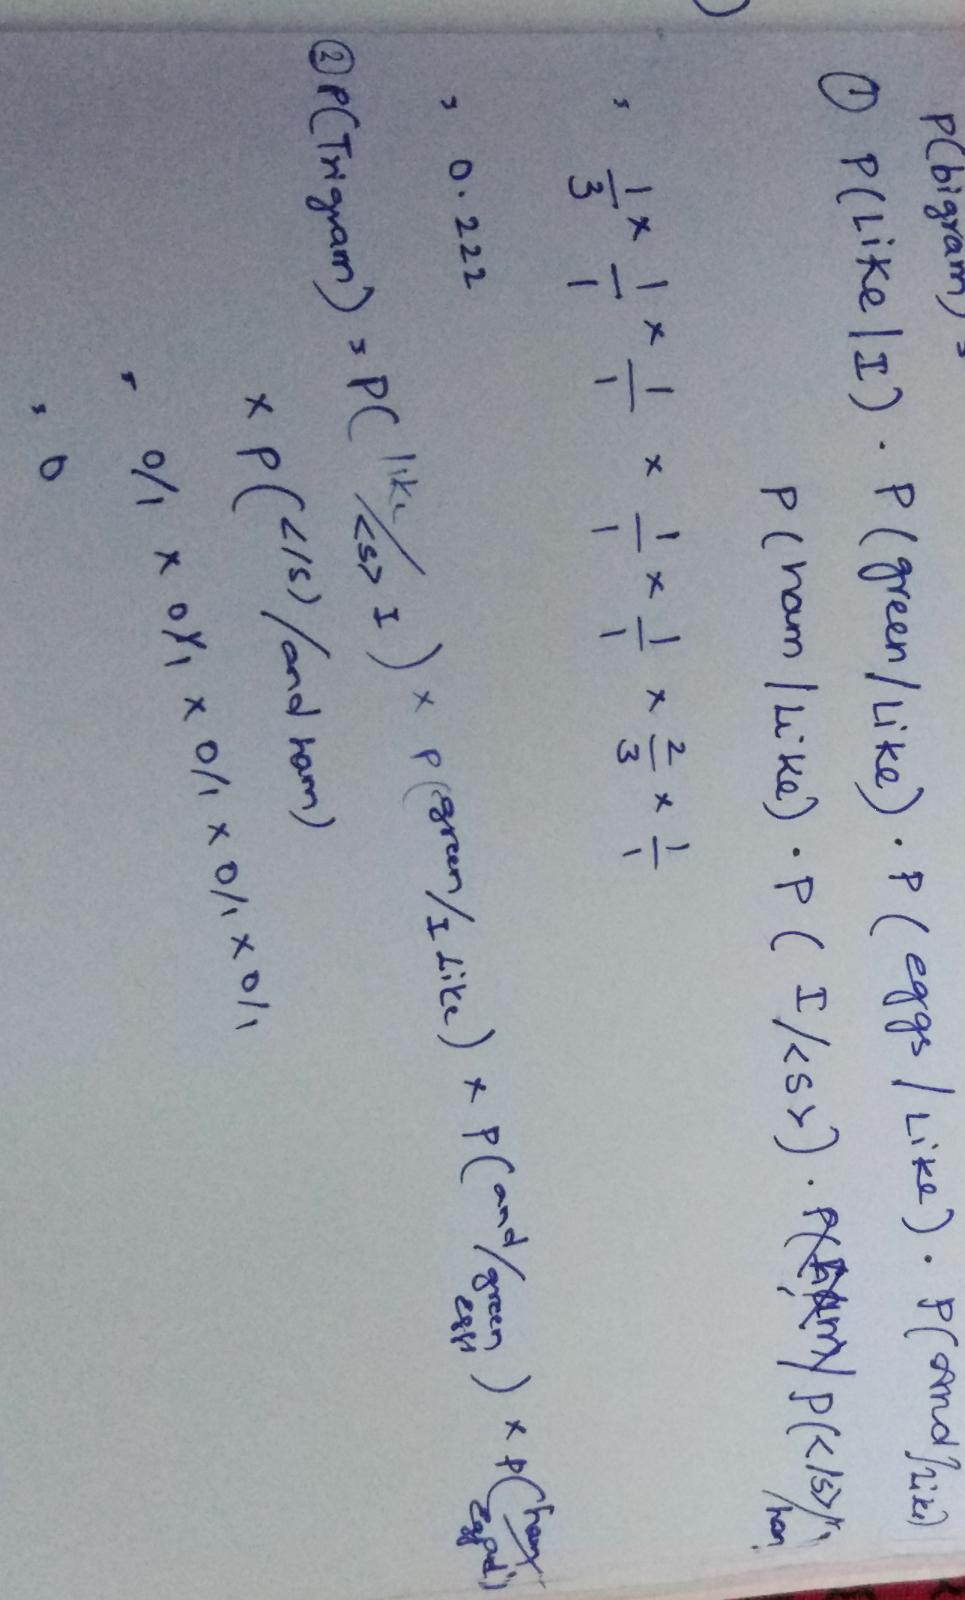 P(bigram) =
① P(Like | I) . P(green/Like) . P(eggs/Like) . P(and/Like)
P(ham/Like) . P(I/<s>) . P(</s>/ham
= 1/3 x 1/1 x 1/1 x 1/1 x 1/1 x 2/3 x 1/1
= 0.222
② P(Trigram) = P(like/<s> I) x P(green/I Like) x P(and/green eggs) x P(ham/
x P(</s>/and ham)
= 0/1 x 0/1 x 0/1 x 0/1 x 0/1
= 0